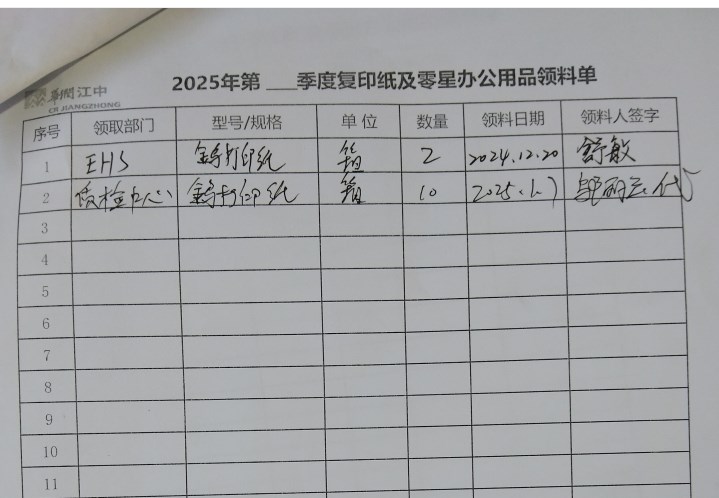 華潤江中
CR JIANGZHONG
2025年第___季度复印纸及零星办公用品领料单
序号 领取部门 型号/规格 单 位 数量 领料日期 领料人签字
1 EHS 打印纸 箱 2 2024.12.20 舒敏
2 质检中心 打印纸 箱 10 2025.1.7 代
3
4
5
6
7
8
9
10
11